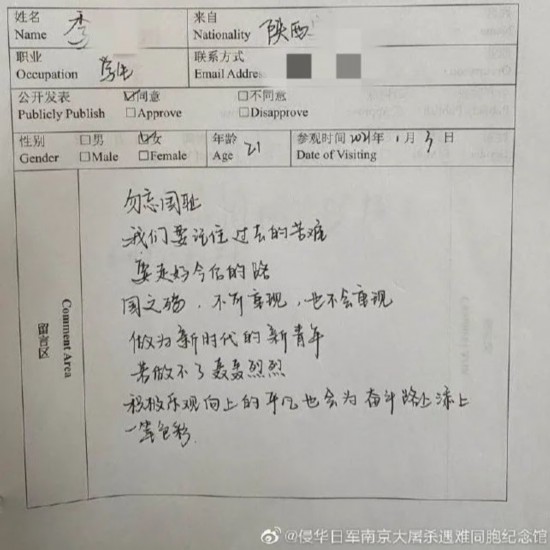 姓名 李 来自 陕西
Name Nationality
职业 学生 联系方式
Occupation Email Addre
公开发表 ☑同意 □不同意
Publicly Publish □Approve □Disapprove
性别 □男 ☑女 年龄 21 参观时间 2021年 1月 3日
Gender □Male □Female Age Date of Visiting
留言区 Comment Area
勿忘国耻
我们要记住过去的苦难
要走好今后的路
国之殇，不可重现，也不会重现
做为新时代的新青年
若做不了轰轰烈烈
积极乐观向上的平凡也会为奋斗路上添上
一笔色彩
@侵华日军南京大屠杀遇难同胞纪念馆